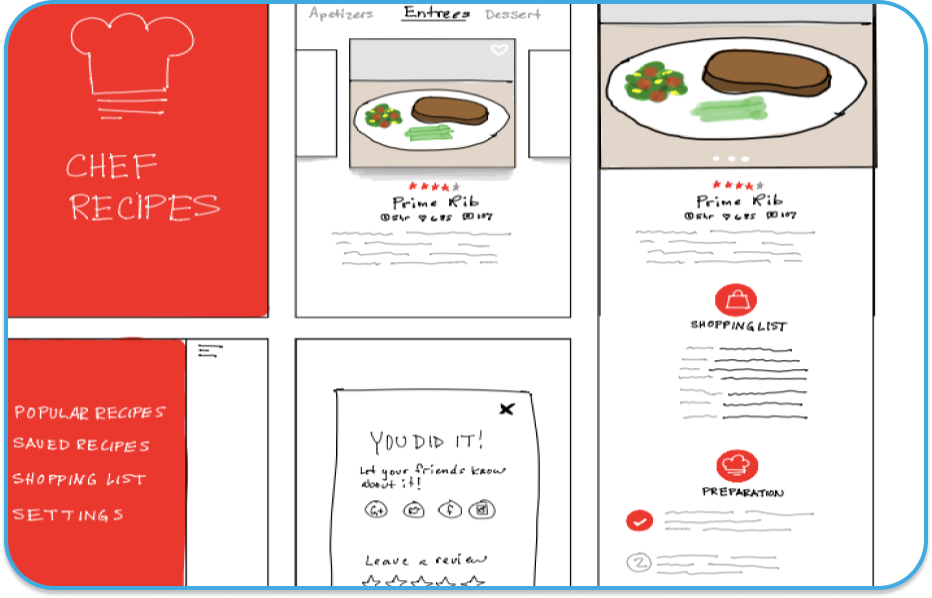 CHEF
RECIPES
Apetizers Entrees Dessert
Prime Rib
5hr 685 107
Prime Rib
5hr 685 107
SHOPPING LIST
PREPARATION
2
POPULAR RECIPES
SAVED RECIPES
SHOPPING LIST
SETTINGS
X
YOU DID IT!
Let your friends know
about it!
G+ f
Leave a review